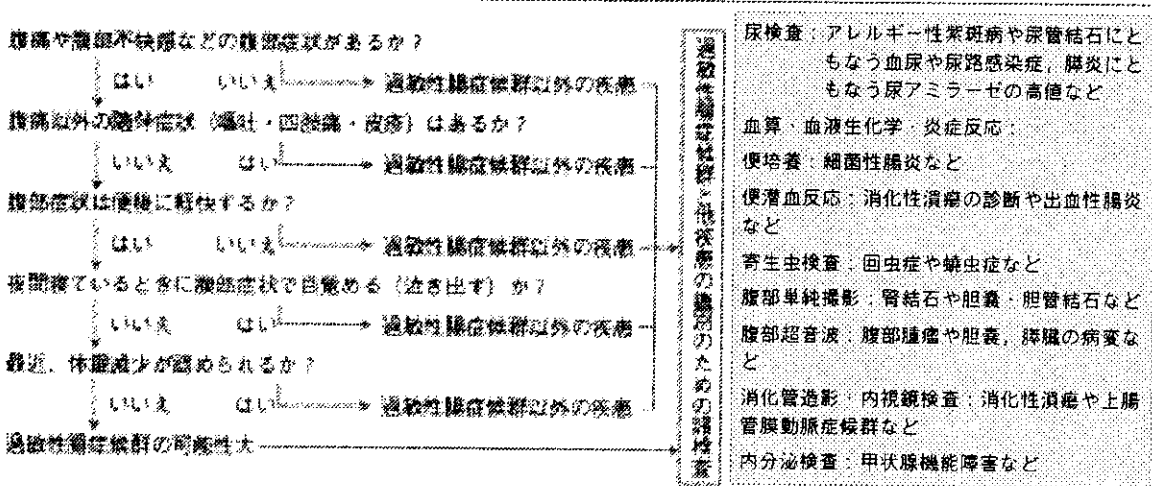 腹痛や腹部不快感などの腹部症状があるか？
はい いいえ 過敏性腸症候群以外の疾患
腹痛以外の随伴症状（嘔吐・四肢痛・皮疹）はあるか？
いいえ はい 過敏性腸症候群以外の疾患
腹部症状は便後に軽快するか？
はい いいえ 過敏性腸症候群以外の疾患
夜間寝ているときに腹部症状で目覚める（泣き出す）か？
いいえ はい 過敏性腸症候群以外の疾患
最近，体重減少が認められるか？
いいえ はい 過敏性腸症候群以外の疾患
過敏性腸症候群の可能性大
過敏性腸症候群と他疾患の鑑別のための諸検査
尿検査：アレルギー性紫斑病や尿管結石にと
もなう血尿や尿路感染症，膵炎にと
もなう尿アミラーゼの高値など
血算・血液生化学・炎症反応：
便培養：細菌性腸炎など
便潜血反応：消化性潰瘍の診断や出血性腸炎
など
寄生虫検査：回虫症や蟯虫症など
腹部単純撮影：腎結石や胆嚢・胆管結石など
腹部超音波：腹部腫瘤や胆嚢，膵臓の病変な
ど
消化管造影・内視鏡検査：消化性潰瘍や上腸
管膜動脈症候群など
内分泌検査：甲状腺機能障害など